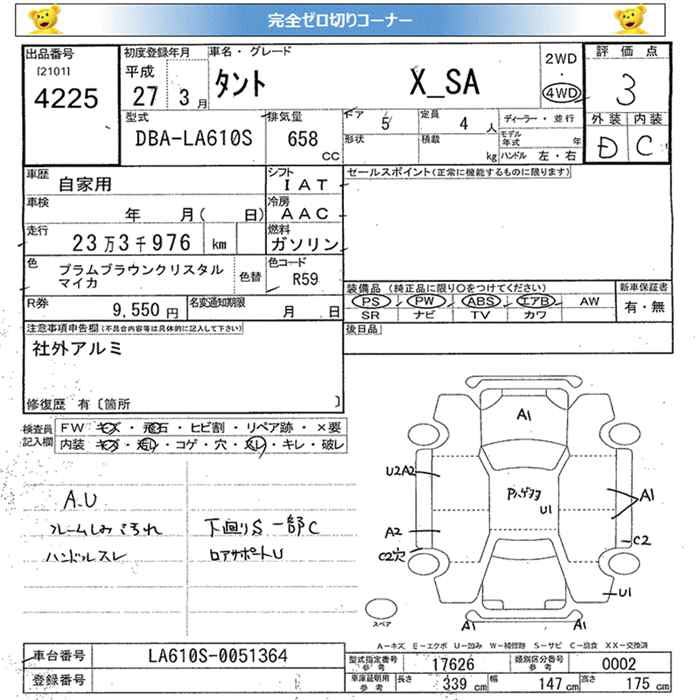 完全ゼロ切りコーナー
出品番号 初度登録年月 車名・グレード 2WD 評価点
[2101] 平成 タント X_SA ・ 3
4225 27 3月 4WD
型式 排気量 ドア 5 定員 4人 ディーラー・並行 外装 内装
DBA-LA610S 658 CC 形状 積載 kg モデル年式 年 D C
ハンドル 左・右
車歴 自家用 シフト IAT セールスポイント(正常に機能するものに限ります)
車検 年 月( 日) 冷房 AAC
走行 23万3千976 km 燃料 ガソリン
色 プラムブラウンクリスタルマイカ 色替 色コード R59
装備品 (純正品に限り○をつけてください) 新車保証書
PS PW ABS エアB AW 有・無
SR ナビ TV カワ
R券 9,550円 名変通知期限 月 日
注意事項申告欄(不具合内容等は具体的に記入して下さい) 後日品
社外アルミ
修復歴 有〔箇所 〕
検査員記入欄 FW キズ・飛石・ヒビ割・リペア跡・×要
内装 キズ・汚レ・コゲ・穴・スレ・キレ・破レ
A.U
フレームしみ こスれ 下廻りS 一部C
ハンドルスレ ロアサポートU
A1
U2A2
U1
A1
A2
C2
C2穴
U1
スペア
A1 A1
A-キズ E-エクボ U-凹み W-補修跡 S-サビ C-腐食 XX-交換済
車台番号 LA610S-0051364 型式指定番号 参考 17626 類別区分番号 参考 0002
登録番号 車庫証明用 参考 長さ 339 cm 幅 147 cm 高さ 175 cm